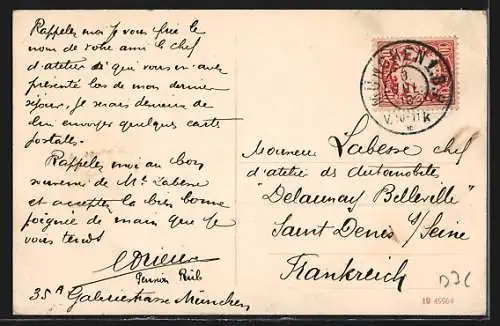 Rappelez moi je vous prie le
nom de votre ami le chef
d'atelier de qui vous m'avez
présenté lors de mon dernier
séjour, je serais désireux de
lui envoyer quelques cartes
postales.
Rappelez moi au bon
souvenir de Mr Labesse
et acceptez la très bonne
poignée de main que je
vous tends
Pension Riel
35A Galeriestrasse München
MÜNCHEN
Monsieur Labesse chef
d'atelier des automobiles
"Delaunay Belleville"
Saint Denis s/Seine
Frankreich